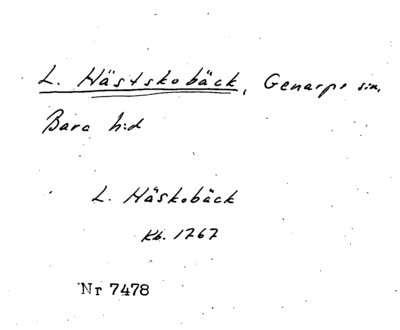 L. Hästskobäck, Genarps sn,
Bara hd
L. Häskobäck
Kb. 1767
Nr 7478